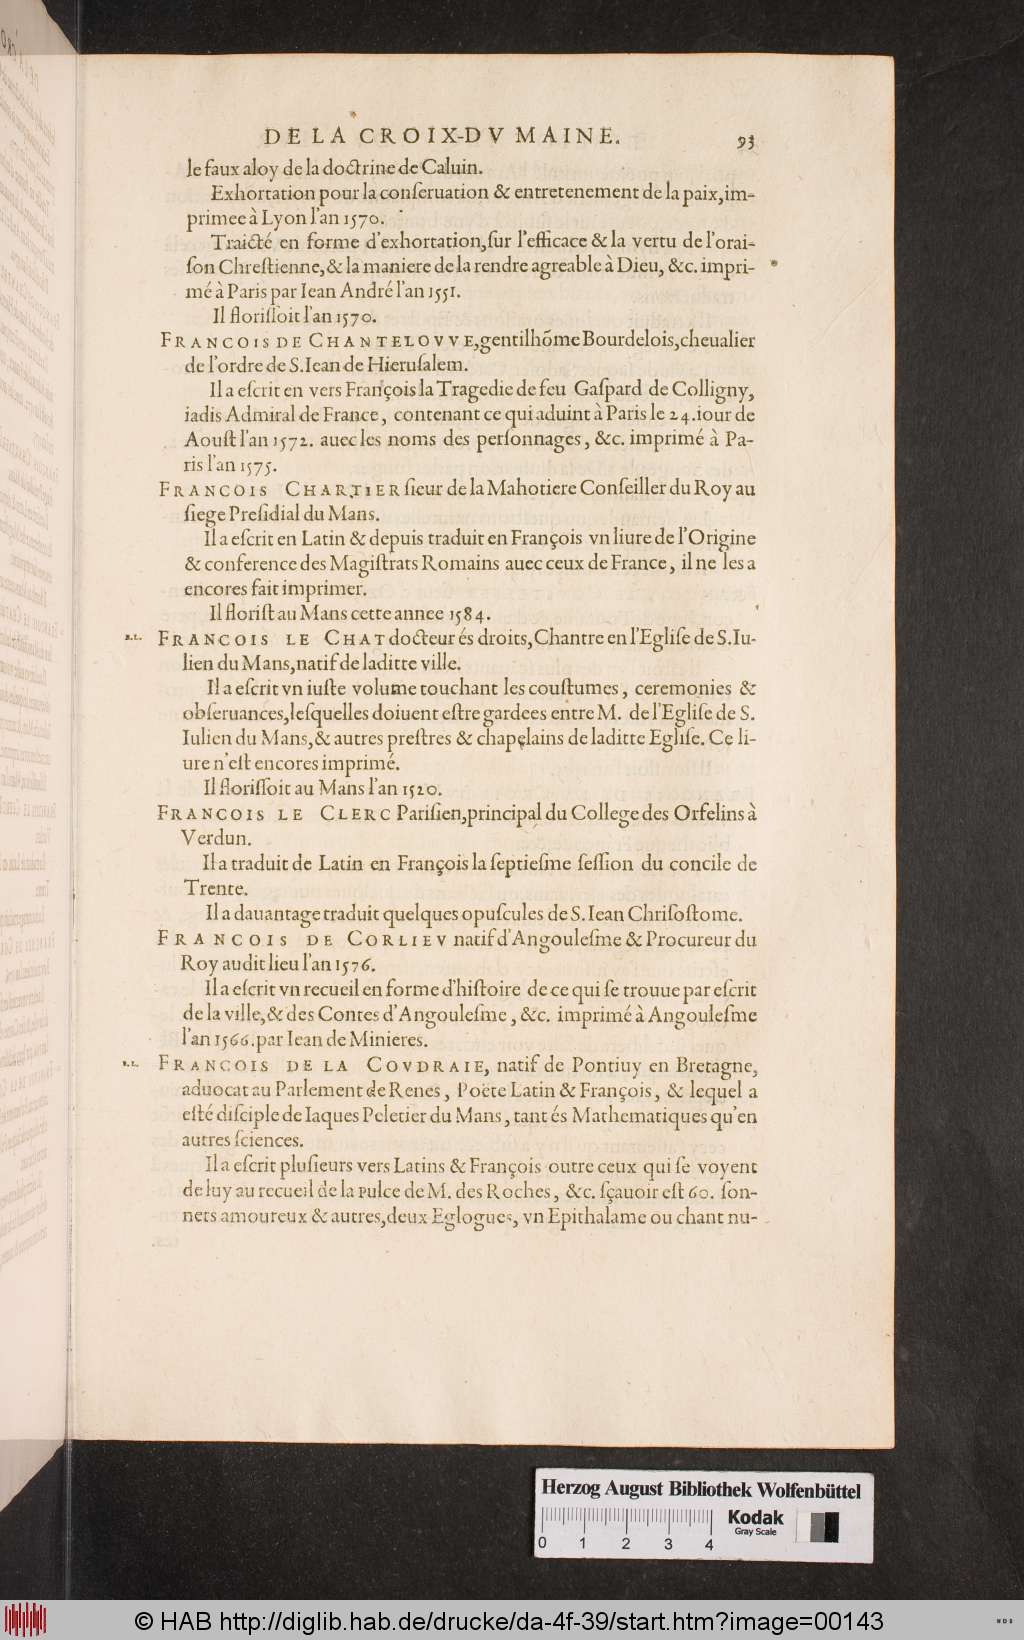 DE LA CROIX-DV MAINE. 93
le faux aloy de la doctrine de Caluin.
Exhortation pour la conſeruation & entretenement de la paix, im-
primee à Lyon l'an 1570.
Traicté en forme d'exhortation, ſur l'efficace & la vertu de l'orai-
ſon Chreſtienne, & la maniere de la rendre agreable à Dieu, &c. impri-
mé à Paris par Iean André l'an 1551.
Il floriſſoit l'an 1570.
FRANCOIS DE CHANTELOVVE, gentilhõme Bourdelois, cheualier
de l'ordre de S. Iean de Hieruſalem.
Il a eſcrit en vers François la Tragedie de feu Gaſpard de Colligny,
iadis Admiral de France, contenant ce qui aduint à Paris le 24. iour de
Aouſt l'an 1572. auec les noms des perſonnages, &c. imprimé à Pa-
ris l'an 1575.
FRANCOIS CHARTIER ſieur de la Mahotiere Conſeiller du Roy au
ſiege Preſidial du Mans.
Il a eſcrit en Latin & depuis traduit en François vn liure de l'Origine
& conference des Magiſtrats Romains auec ceux de France, il ne les a
encores fait imprimer.
Il floriſt au Mans cette annee 1584.
B.L. FRANCOIS LE CHAT docteur és droits, Chantre en l'Egliſe de S. Iu-
lien du Mans, natif de laditte ville.
Il a eſcrit vn iuſte volume touchant les couſtumes, ceremonies &
obſeruances, leſquelles doiuent eſtre gardees entre M. de l'Egliſe de S.
Iulien du Mans, & autres preſtres & chapelains de laditte Egliſe. Ce li-
ure n'eſt encores imprimé.
Il floriſſoit au Mans l'an 1520.
FRANCOIS LE CLERC Pariſien, principal du College des Orfelins à
Verdun.
Il a traduit de Latin en François la ſeptieſme ſeſſion du concile de
Trente.
Il a dauantage traduit quelques opuſcules de S. Iean Chriſoſtome.
FRANCOIS DE CORLIEV natif d'Angouleſme & Procureur du
Roy audit lieu l'an 1576.
Il a eſcrit vn recueil en forme d'hiſtoire de ce qui ſe trouue par eſcrit
de la ville, & des Contes d'Angouleſme, &c. imprimé à Angouleſme
l'an 1566. par Iean de Minieres.
B.L. FRANCOIS DE LA COVDRAIE, natif de Pontiuy en Bretagne,
aduocat au Parlement de Renes, Poëte Latin & François, & lequel a
eſté diſciple de Iaques Peletier du Mans, tant és Mathematiques qu'en
autres ſciences.
Il a eſcrit pluſieurs vers Latins & François outre ceux qui ſe voyent
de luy au recueil de la pulce de M. des Roches, &c. ſçauoir eſt 60. ſon-
nets amoureux & autres, deux Eglogues, vn Epithalame ou chant nu-
Herzog August Bibliothek Wolfenbüttel
Kodak
Gray Scale
0 1 2 3 4
© HAB http://diglib.hab.de/drucke/da-4f-39/start.htm?image=00143